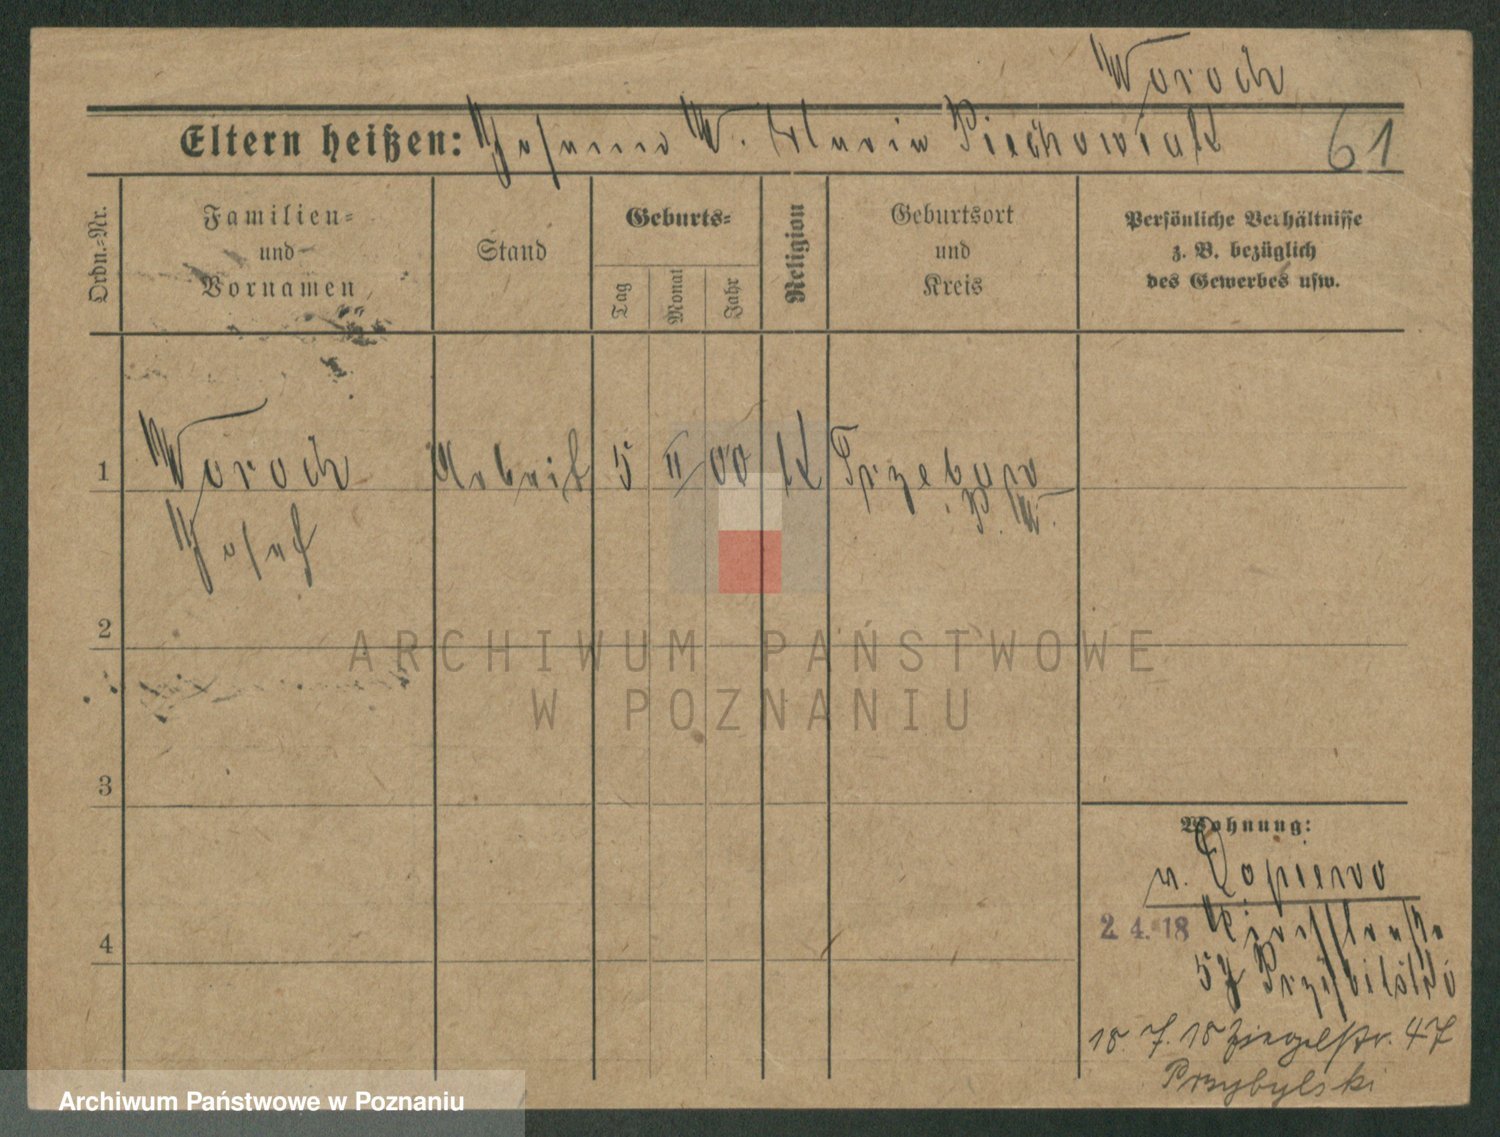 Woroch
Eltern heißen: Johann W. Maria Piechowiak 61
Ordn.-Nr.
Familien-
und
Vornamen
Stand
Geburts-
Tag
Monat
Jahr
Religion
Geburtsort
und
Kreis
Persönliche Verhältnisse
z. B. bezüglich
des Gewerbes usw.
1 Woroch Arbeit 5 II 00 K
P. W.
Josef
2
3
4
Wohnung:
n. Dopiewo
2. 4. 18
18. 7. 18 Ziegelstr. 47
Przybylski
ARCHIWUM PAŃSTWOWE
W POZNANIU
Archiwum Państwowe w Poznaniu